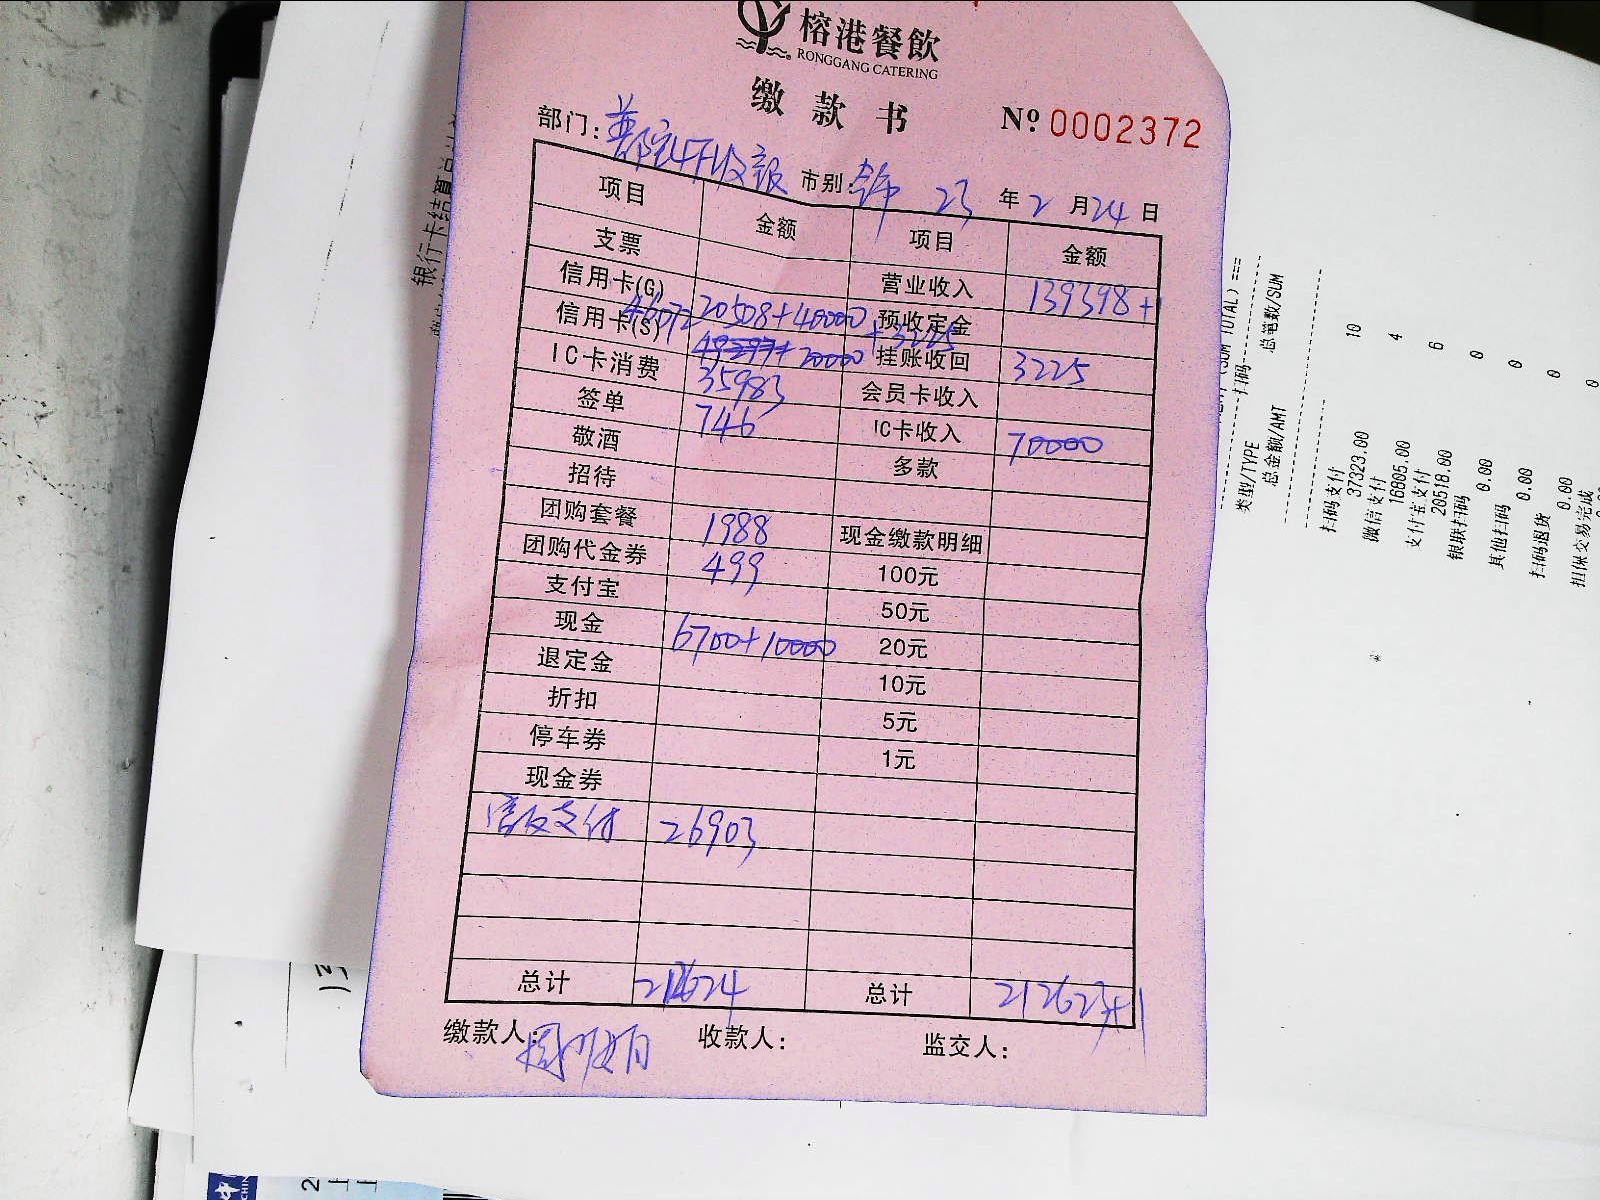 榕港餐飲
RONGGANG CATERING
缴款书
Nº 0002372
部门:
市别: 23 年 2 月 24 日
项目 金额 项目 金额
支票 营业收入 139398+1
信用卡(G) 20508+40000 预收定金
+3225
信用卡(S) 46072 挂账收回 3225
IC卡消费 35983 会员卡收入
签单 746 IC卡收入 70000
敬酒 多款
招待
团购套餐 1988 现金缴款明细
团购代金券 499 100元
支付宝 50元
现金 6700+10000 20元
退定金 10元
折扣 5元
停车券 1元
现金券
支付 26903
总计 212624 总计 212623+1
缴款人: 收款人: 监交人:
类型/TYPE 扫码 总笔数/SUM
总金额/AMT
扫码支付 10
37323.00
微信支付 4
16805.00
支付宝支付 6
20518.00
银联扫码 0
0.00
其他扫码 0
0.00
扫码退货 0
0.00
担保交易完成 0